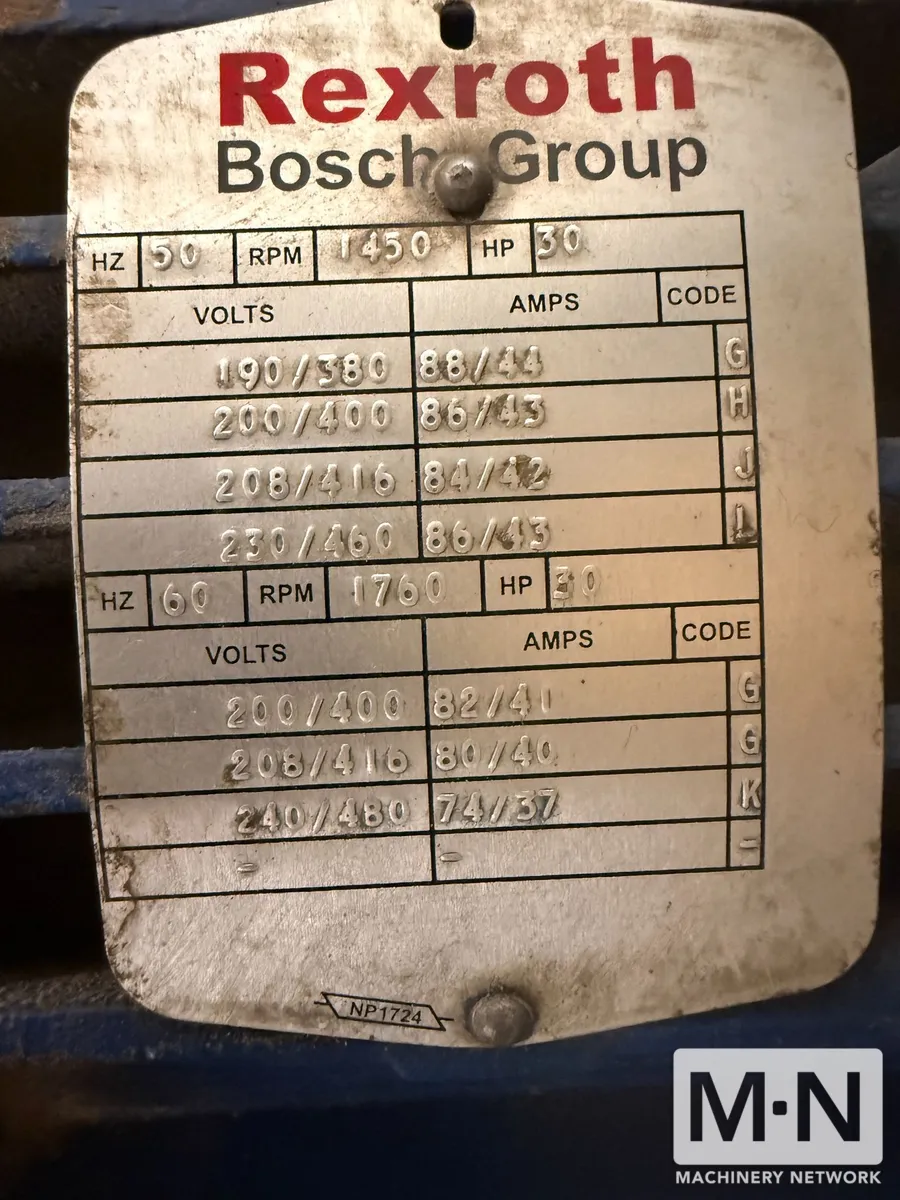 Rexroth
Bosch Group
HZ 50 RPM 1450 HP 30
VOLTS AMPS CODE
190/380 88/44 G
200/400 86/43 H
208/416 84/42 J
230/460 86/43 L
HZ 60 RPM 1760 HP 30
VOLTS AMPS CODE
200/400 82/41 G
208/416 80/40 G
240/480 74/37 K
- - -
NP1724
M·N
MACHINERY NETWORK